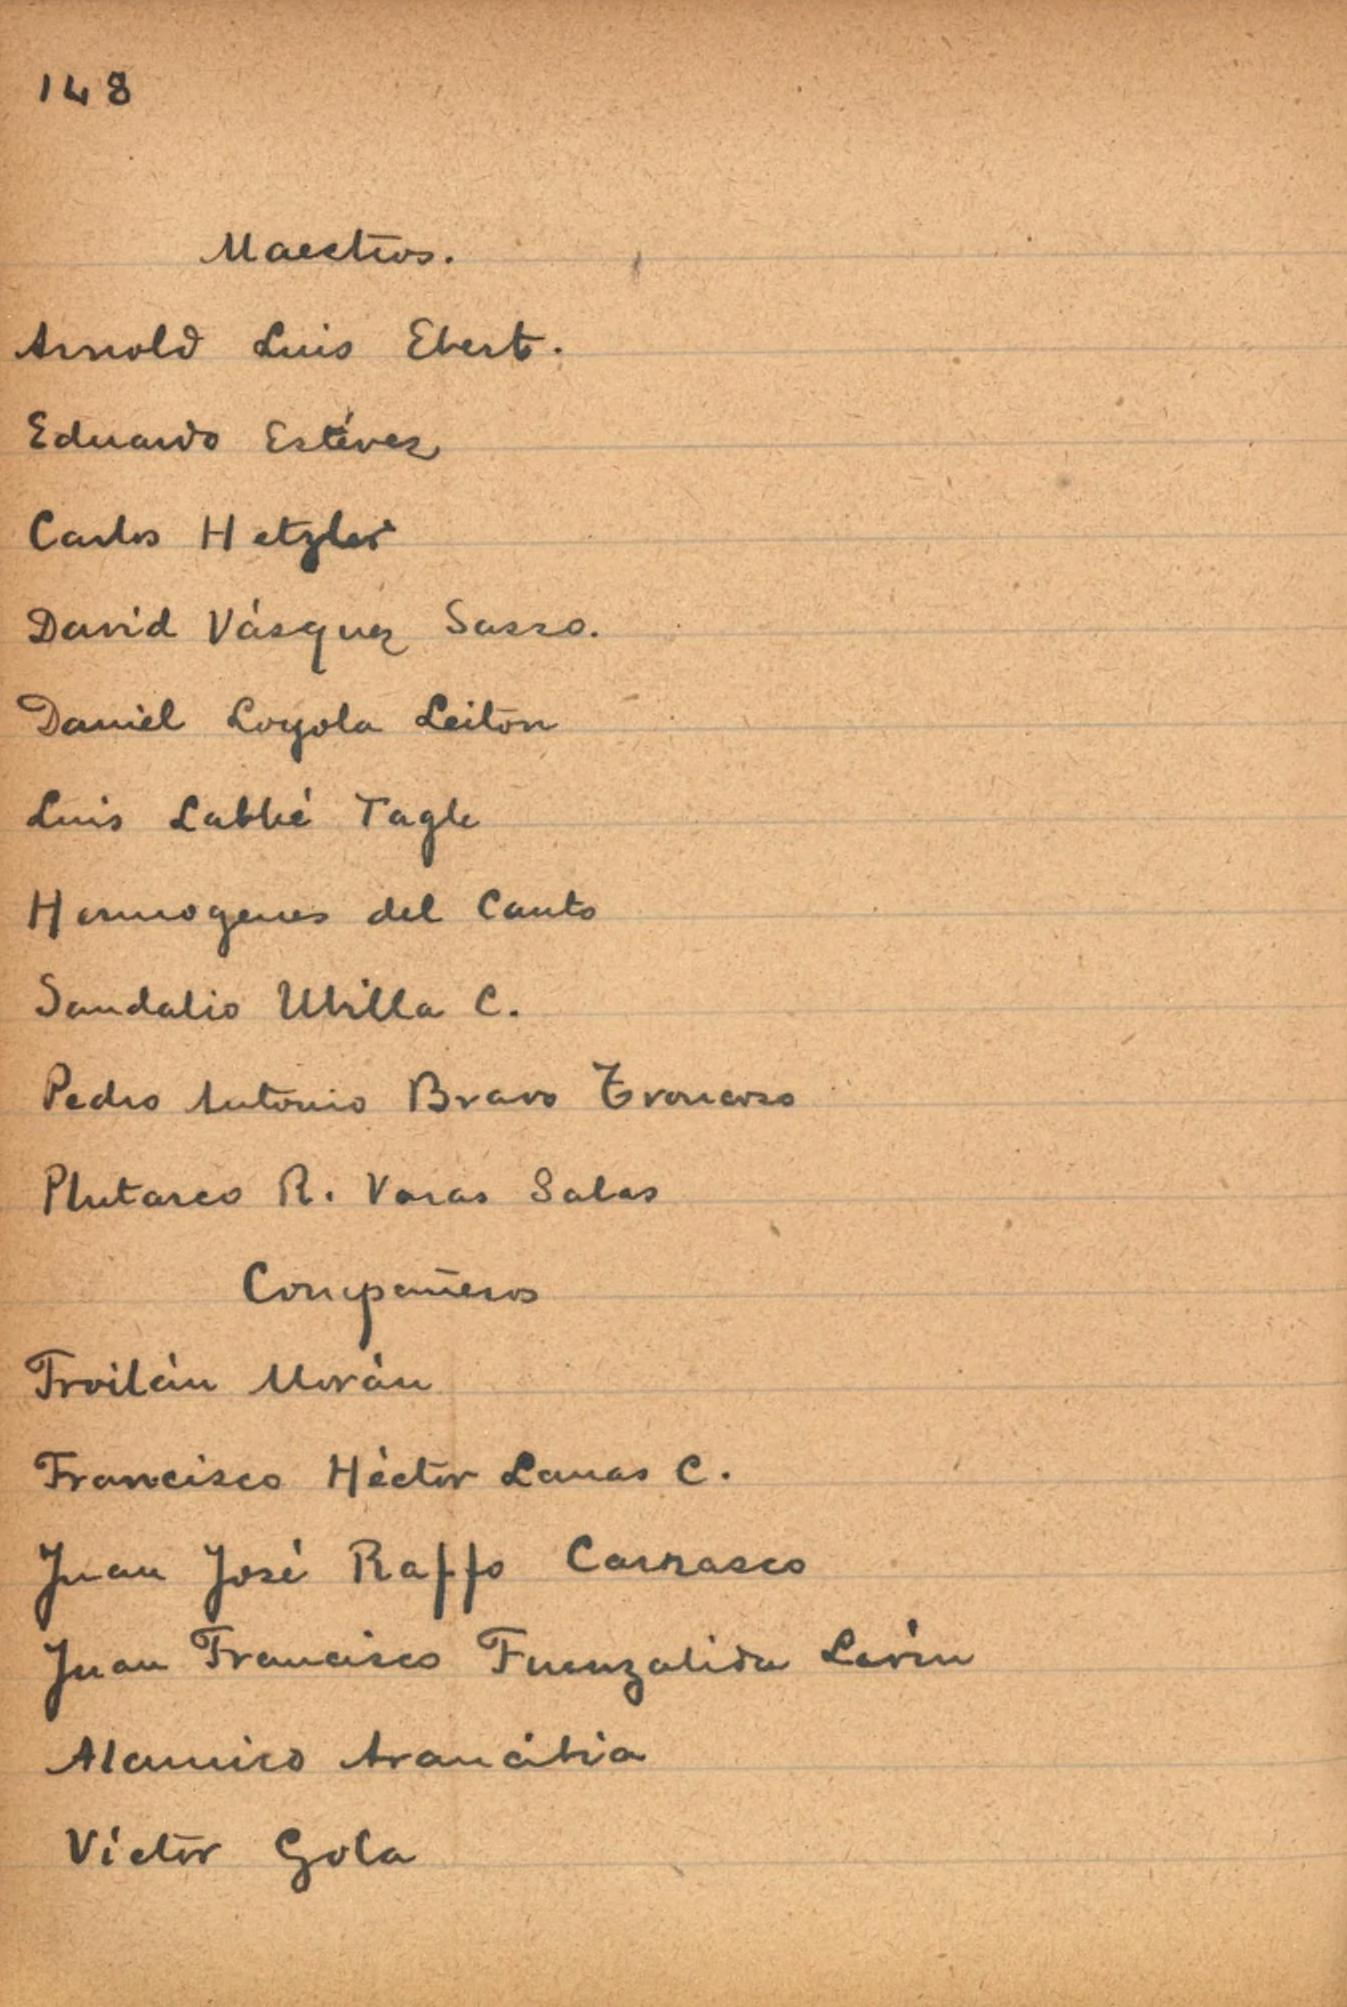 148
Maestros.
Arnold Luis Ebert.
Eduardo Estévez
Carlos Hetzler
David Vásquez Sasso.
Daniel Loyola Leiton
Luis Labbé Tagle
Hermogenes del Canto
Sandalio Ubilla C.
Pedro Antonio Bravo Troncoso
Plutarco R. Varas Salas
Compañeros
Froilán Morán
Francisco Héctor Lanas C.
Juan José Raffo Carrasco
Juan Francisco Fuenzalida
Alamiro Arancibia
Víctor Gola